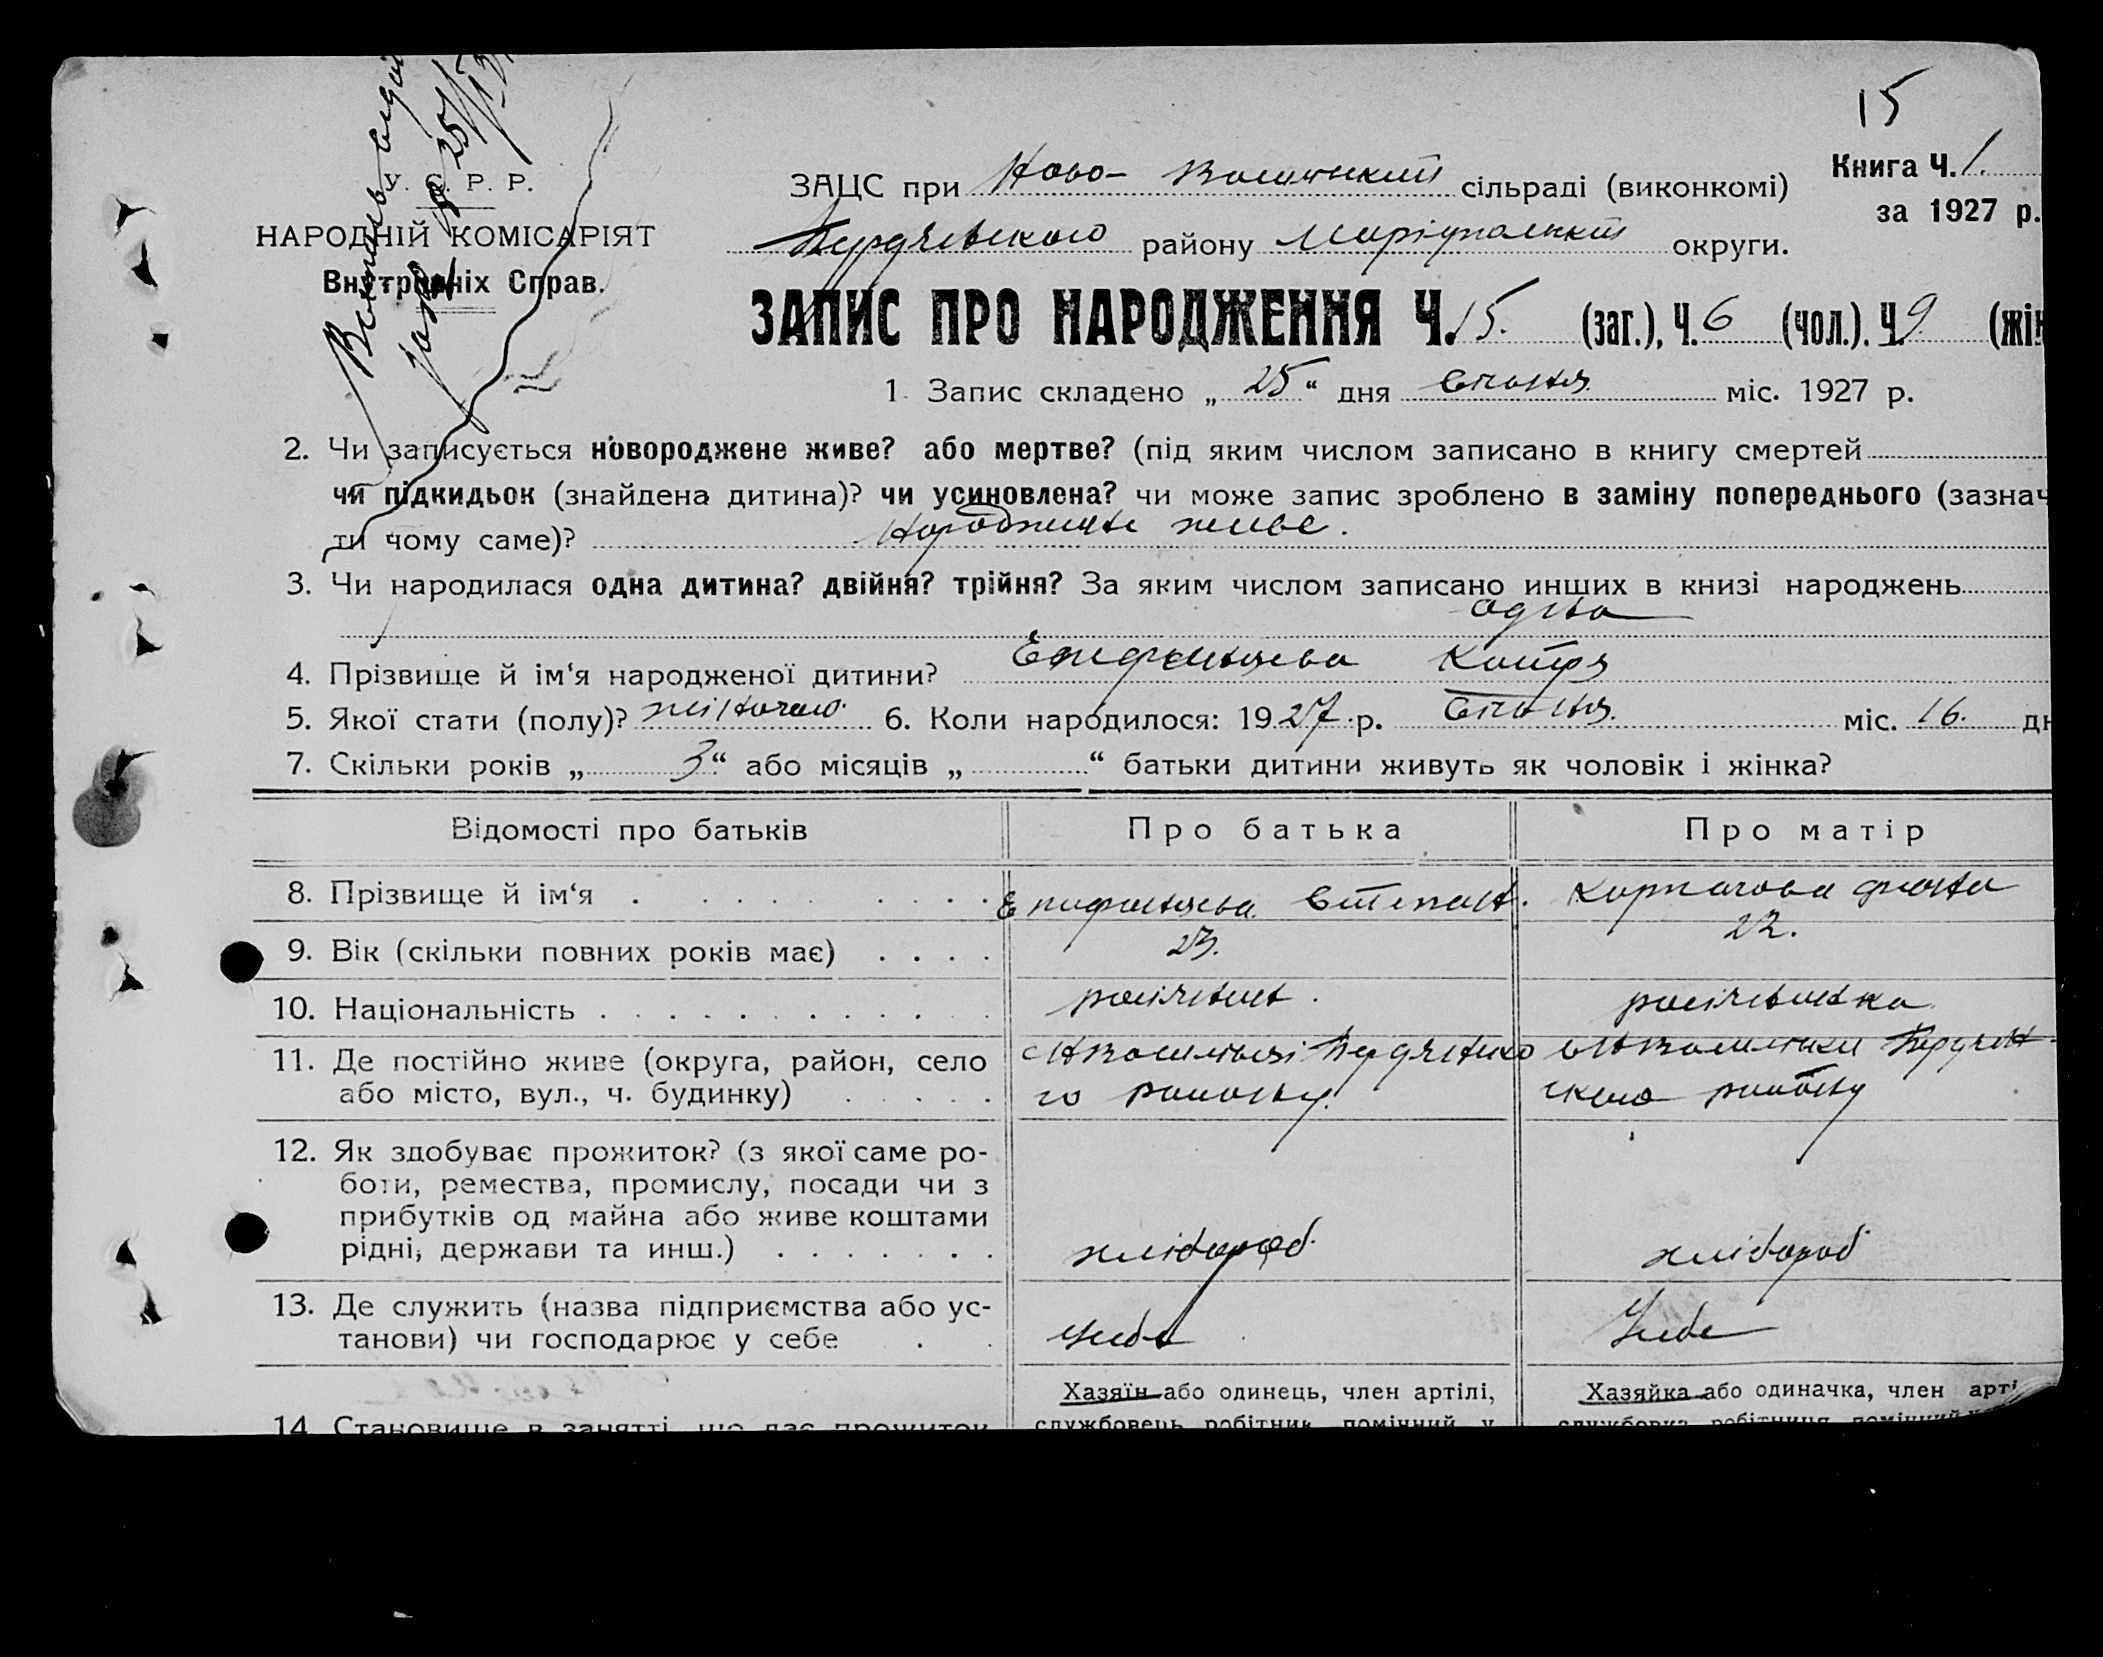 15
Книга Ч. 1.
за 1927 р.
У. С. Р. Р.
НАРОДНІЙ КОМІСАРІЯТ
Внутрішніх Справ.
ЗАЦС при Ново- сільраді (виконкомі)
району округи.
ЗАПИС ПРО НАРОДЖЕННЯ Ч. 15. (заг.), Ч. 6 (чол.). Ч. 9. (жін
1. Запис складено „ 25 “ дня Січня міс. 1927 р.
2. Чи записується новороджене живе? або мертве? (під яким числом записано в книгу смертей
чи підкидьок (знайдена дитина)? чи усиновлена? чи може запис зроблено в заміну попереднього (зазнач
ти чому саме)? живе.
3. Чи народилася одна дитина? двійня? трійня? За яким числом записано инших в книзі народжень
одна
4. Прізвище й ім‘я народженої дитини? Епифанцева Катря
5. Якої стати (полу)? жіночого. 6. Коли народилося: 1927 р. Січня міс. 16. дн
7. Скільки років „ 3 “ або місяців „ “ батьки дитини живуть як чоловік і жінка?
Відомості про батьків Про батька Про матір
8. Прізвище й ім‘я Степан. Карпачова
9. Вік (скільки повних років має) 23. 22.
10. Національність росіянин. росіянка
11. Де постійно живе (округа, район, село
або місто, вул., ч. будинку) району району
12. Як здобуває прожиток? (з якої саме ро-
боти, ремества, промислу, посади чи з
прибутків од майна або живе коштами
рідні, держави та инш.) хлібороб. хлібороб
13. Де служить (назва підприємства або ус-
танови) чи господарює у себе у себе у себе
Хазяїн або одинець, член артілі, Хазяйка або одиначка, член арті
14. Становище в занятті, що дає прожиток службовець, робітник, помічний у службовка, робітниця, помічний